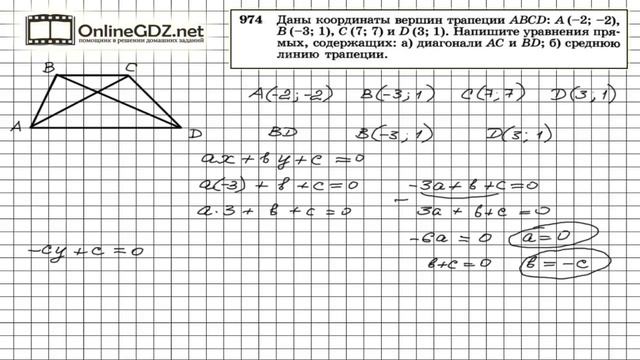 OnlineGDZ.net
помощник в решении домашних заданий
974 Даны координаты вершин трапеции ABCD: A (−2; −2),
B (−3; 1), C (7; 7) и D (3; 1). Напишите уравнения пря-
мых, содержащих: а) диагонали AC и BD; б) среднюю
линию трапеции.
B C
A D
A(-2;-2) B(-3;1) C(7;7) D(3;1)
BD B(-3;1) D(3;1)
ax+by+c=0
a(-3)+b+c=0 -3a+b+c=0
a·3+b+c=0 - 3a+b+c=0
-6a=0 a=0
b+c=0 b=-c
-cy+c=0